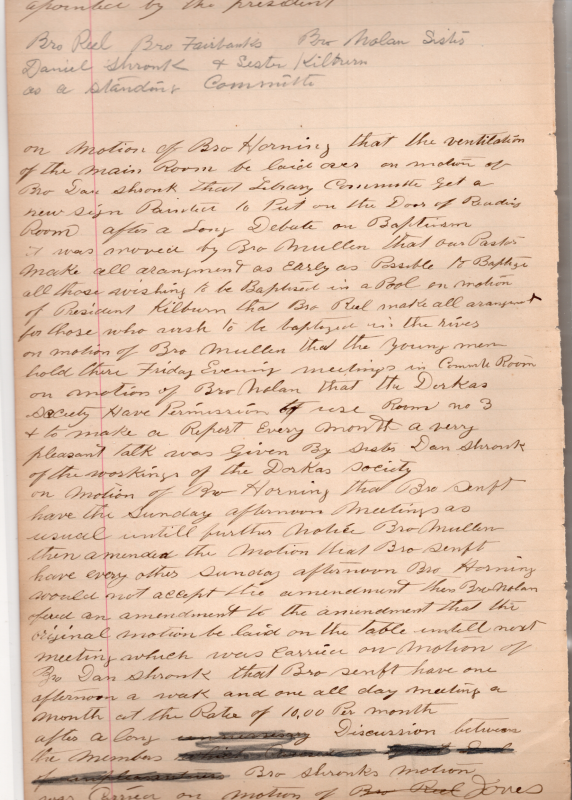 apointee by the president
Bro Reel Bro Fairbanks Bro Nolan Sister
Daniel Shronk & Sister Kilburn
as a standing Committe
on motion of Bro Horning that the ventilation
of the main Room be laid over on motion of
Bro Dan Shronk that Library Committe get a
new sign Painted to Put on the Door of Reading
Room after a Long Debate on Baptism
it was moved by Bro Mullen that our Pastor
make all arangment as Early as Possible to Baptize
all those wishing to be Baptised in a Pool on motion
of President Kilburn tha Bro Reel make all arangment
for those who wish to be baptized in the river
on motion of Bro Mullen that the young men
hold there Friday Evening meetings in Committe Room
on motion of Bro Nolan that the Dorkas
Society Have Permission to use Room no 3
& to make a Report Every month a very
pleasant talk was Given By Sister Dan Shronk
of the workings of the Dorkas Society
on Motion of Bro Horning that Bro Senft
have the Sunday afternoon Meetings as
usual untill further Notice Bro Mullen
then amended the Motion that Bro Senft
have every other Sunday afternoon Bro Horning
would not accept the amendment then Bro Nolan
ofred an amendment to the amendment that the
original motion be laid on the table untill next
meeting which was Carried on Motion of
Bro Dan Shronk that Bro Senft have one
afternoon a weak and one all day meeting a
month at the Rate of 10,00 Per month
after a long Discussion between
the members
Bro Shronks motion
was Carried on motion of Bro Reel Jones